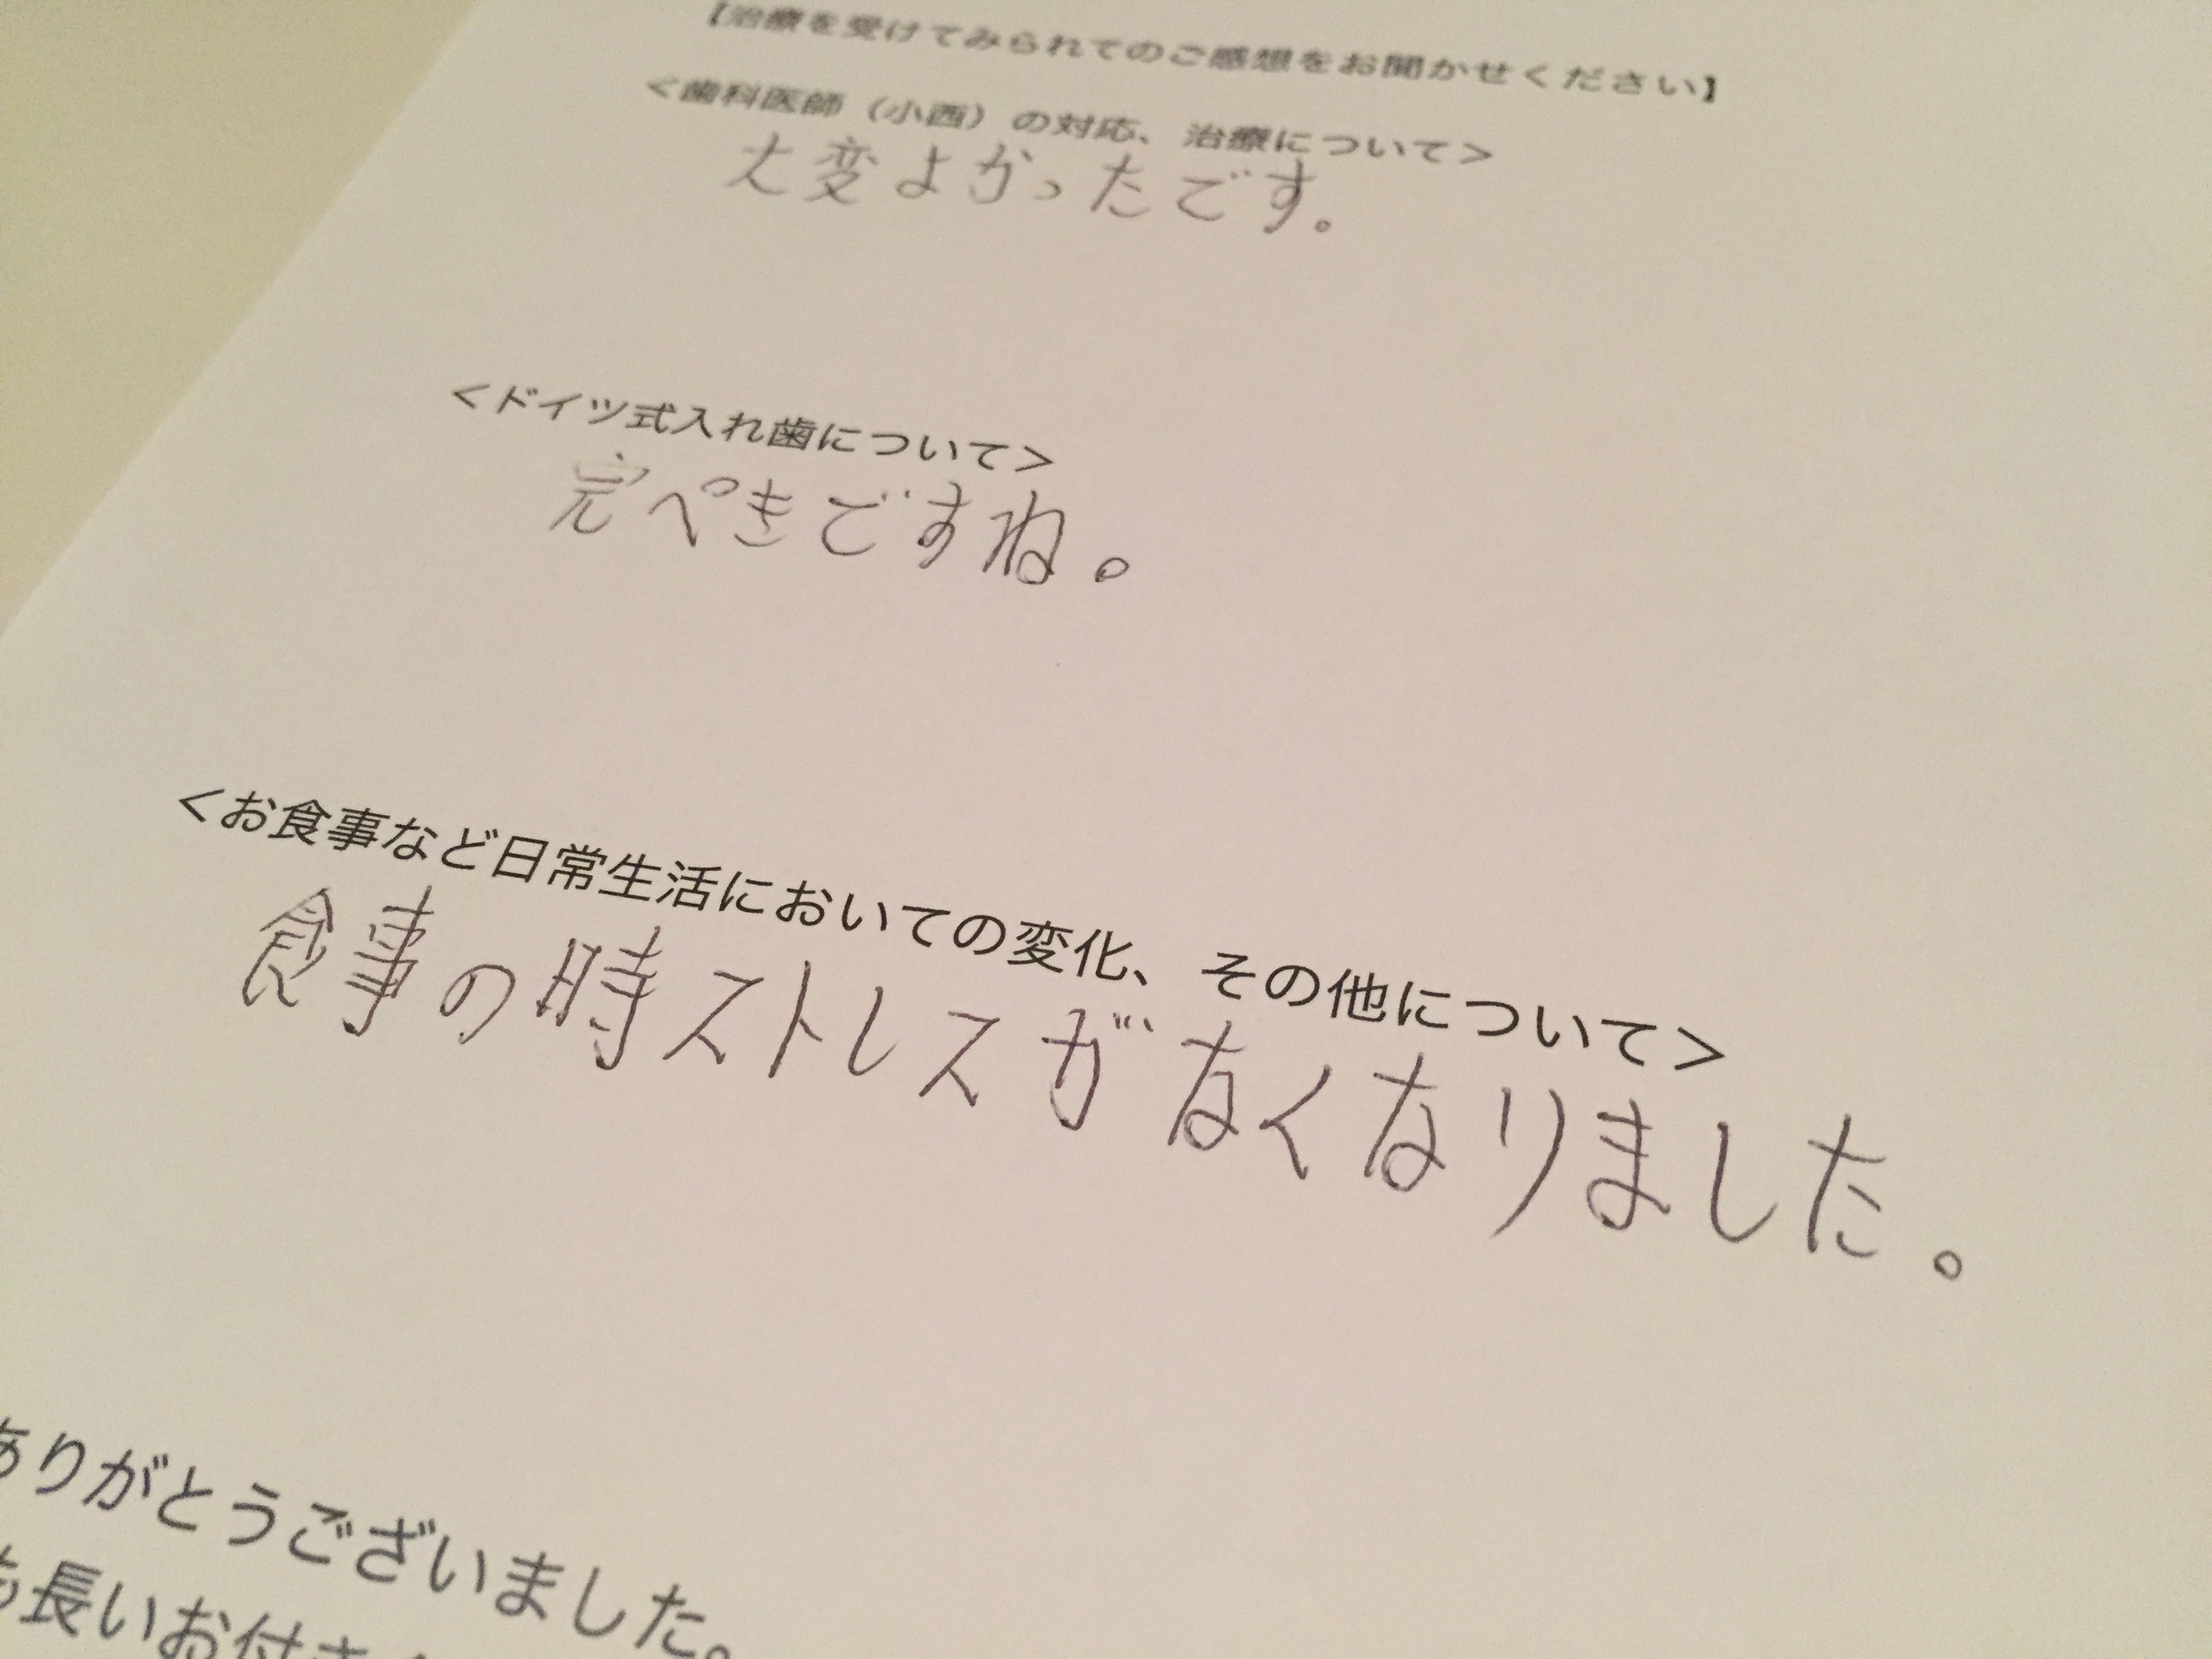 【治療を受けてみられてのご感想をお聞かせください】
＜歯科医師（小西）の対応、治療について＞
大変よかったです。
＜ドイツ式入れ歯について＞
完ぺきですね。
＜お食事など日常生活においての変化、その他について＞
食事の時ストレスがなくなりました。
ありがとうございました。
も長いお付き